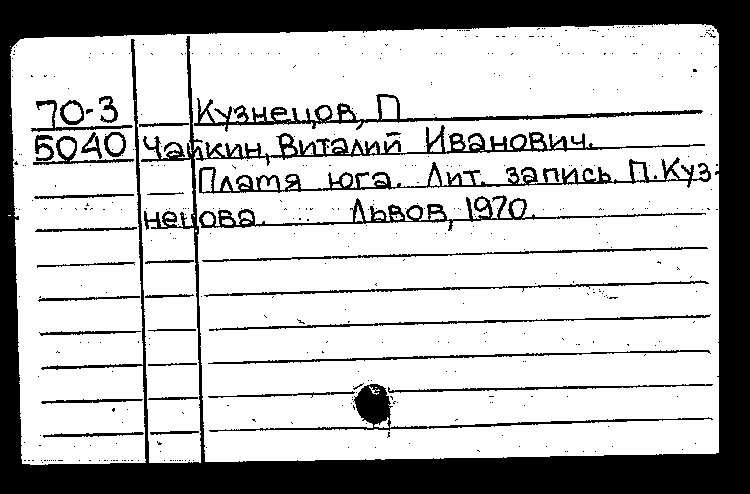 70-3 Кузнецов, П
5040 Чайкин, Виталий Иванович.
Платя юга. Лит. запись П.Куз-
нецова. Львов, 1970.